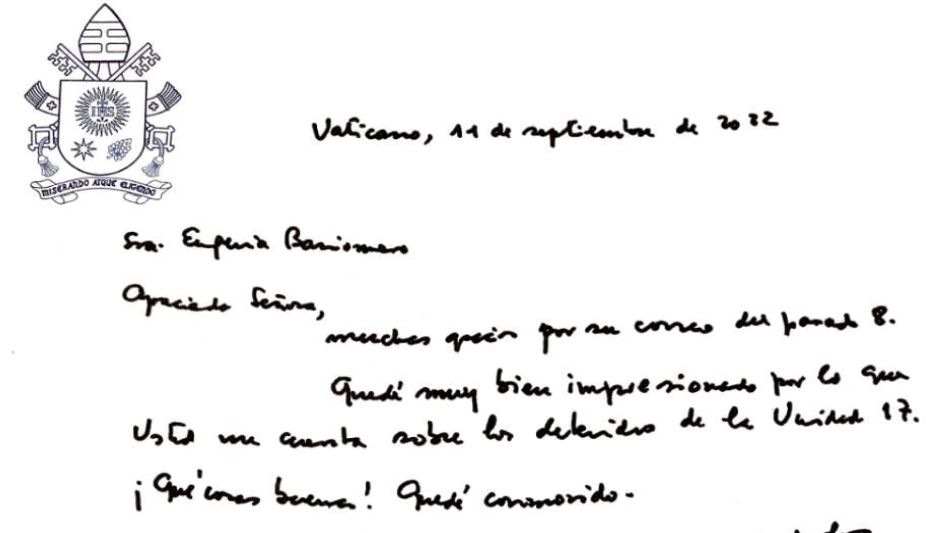 IHS
MISERANDO ATQUE ELIGENDO
Vaticano, 11 de septiembre de 2022
Sra. Eugenia
Apreciada Señora,
muchas gracias por su correo del pasado 8.
Quedé muy bien impresionado por lo que
Usted me cuenta sobre los detenidos de la Unidad 17.
¡Qué cosas buenas! Quedé conmovido.